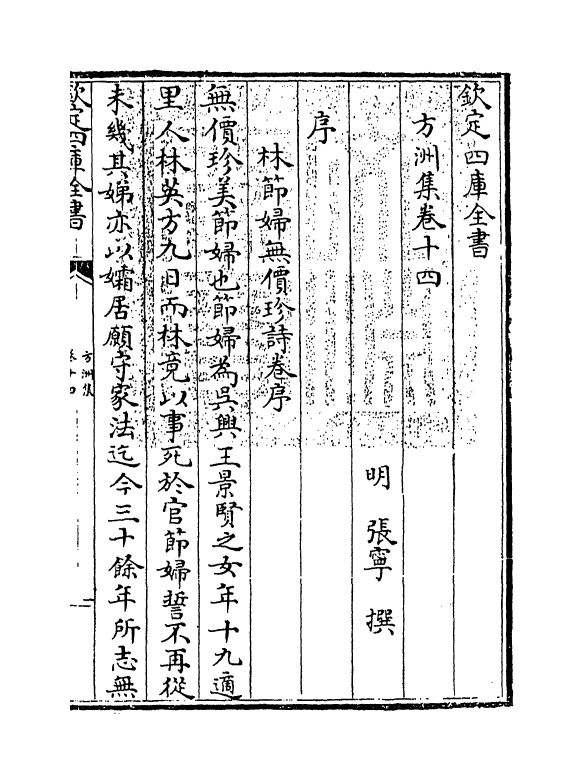 欽定四庫全書
方洲集卷十四
明 張寧 撰
序
林節婦無價珍詩卷序
無價珍美節婦也節婦為吳興王景賢之女年十九適
里人林英方九日而林竟以事死於官節婦誓不再從
未幾其娣亦以孀居願守家法迄今三十餘年所志無
欽定四庫全書
方洲集
卷十四